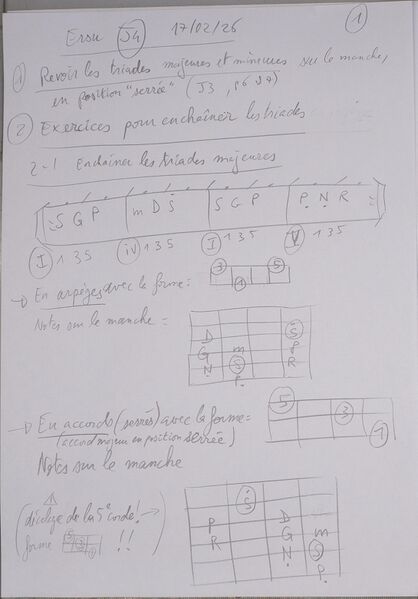 Ersu J4 17/02/26 1
1 Revoir les triades majeures et mineures sur le manche,
en position "serrée" (J3, p6 p7)
2 Exercices pour enchaîner les triades
2-1 Enchaîner les triades majeures
S G P m D Ṡ S G P P N R
I 1 3 5 iv 1 3 5 I 1 3 5 V 1 3 5
→ En arpèges avec la forme = 3 1 5
Notes sur le manche =
D Ṡ
G m P
N S R
P
→ En accords (serrés) avec la forme = 5 3 1
(accord majeur en position serrée)
Notes sur le manche
(décalage de la 5e corde ! →
forme 5 3 1 !!)
Ṡ
P D m
R G S
N P